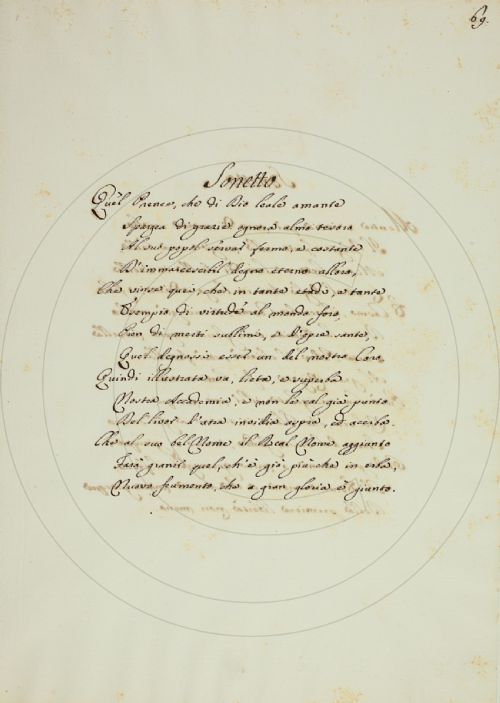 69.
Sonetto
Quel Prence, che di Dio leale amante
Sparger di grazie ognora almo tesoro
Al suo popol fermo, e costante
D'immarcescibil degno eterno alloro,
Che vinse quei, che in tante etadi, e tante
Esempio di virtude al mondo foro,
Pien di merti sublimi, e d'opre sante,
Quel degnossi esser un del nostro Coro
Quindi illustrata va, lieta, e superba
Nostra Accademia, e non le cal già punto
Del livor l'atra invidia aspra, ed acerba.
Che al suo bel Nome il Real Nome aggiunto
Farà granir quel, ch'è già più che in erba
Nuovo frumento, che a gran gloria è giunto.